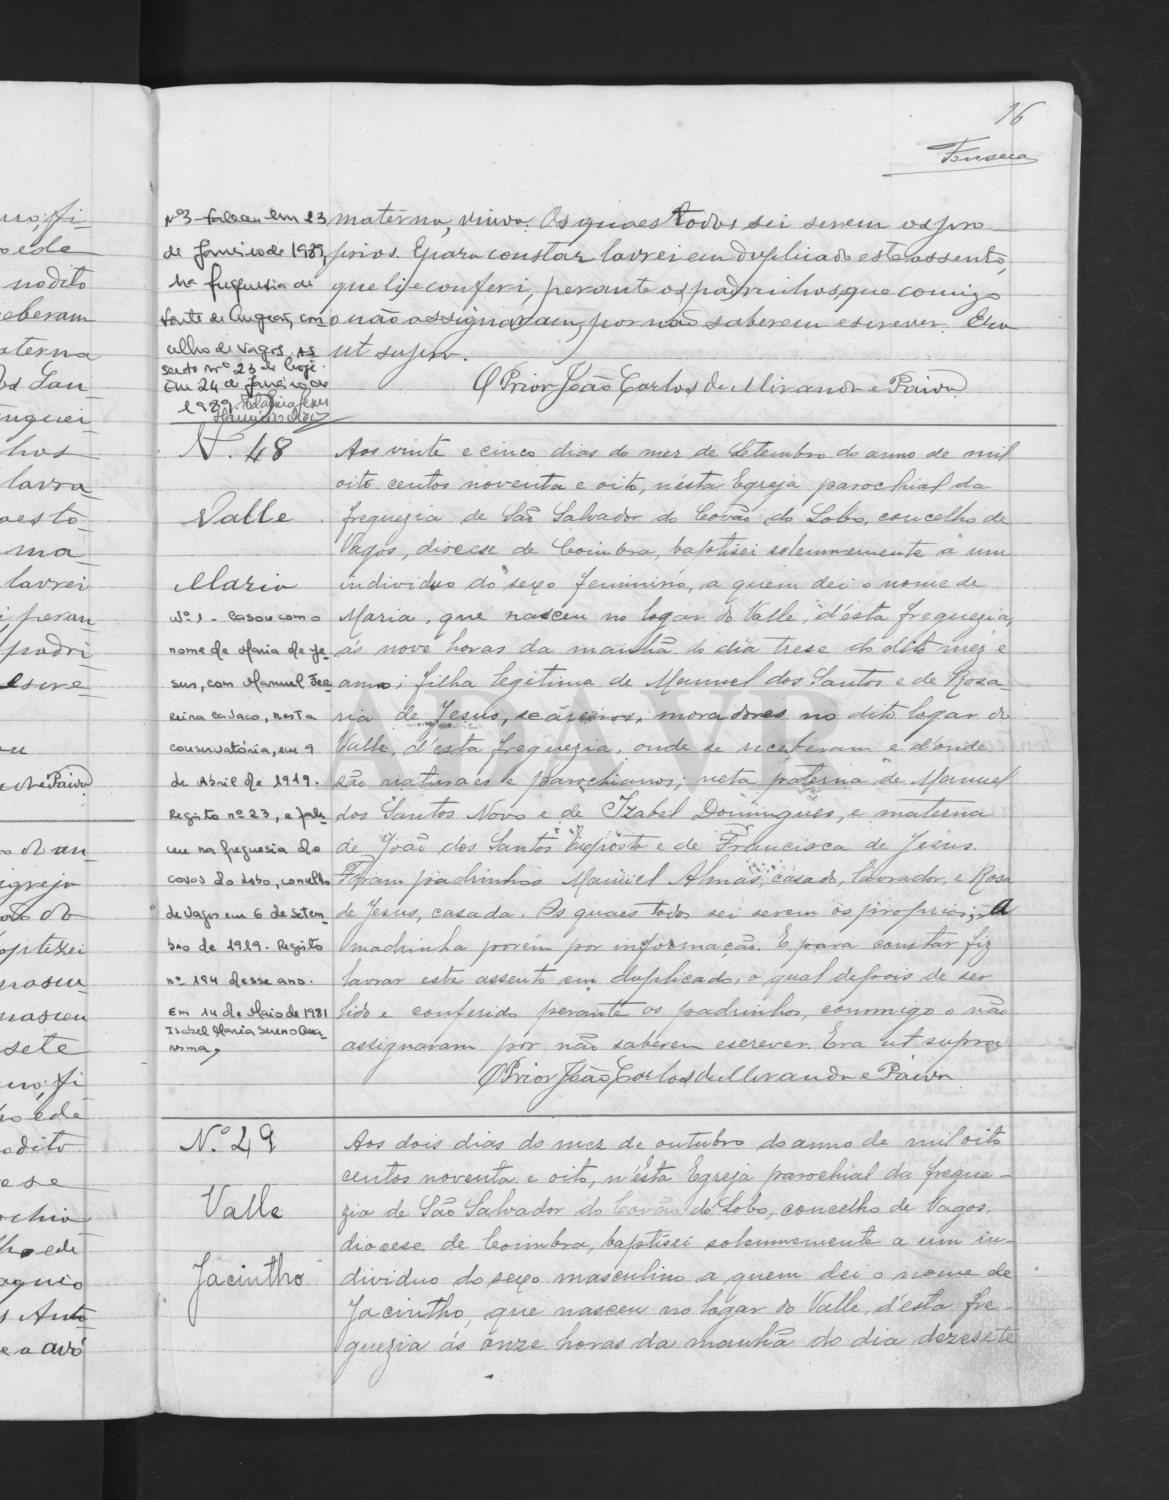 16
Fonseca
Nº 3 - faleceu em 23
de Janeiro de 1989,
na freguesia de
Fonte de Angeão, con-
celho de Vagos. As
sento nº 23 de hoje.
Em 24 de Janeiro de
1989.
materna, viuva. Os quaes todos sei serem os pro
prios. E para constar lavrei em duplicado este assento,
que li e conferi, perante os padrinhos, que comigo
o não assignaram, por não saberem escrever. Era
ut supra.
O Prior João Carlos de Miranda e Paiva
N. 48
Valle
Maria
Nº 1 - Casou com o
nome de Maria de Je-
sus, com Manuel Fer-
reira Casaco, nesta
conservatória, em 9
de Abril de 1919.
Registo nº 23, e fale-
ceu na freguesia de
Covão do Lobo, concelho
de Vagos em 6 de Setem-
bro de 1919. Registo
nº 184 desse ano.
Em 14 de Maio de 1981
Isabel Maria Sereno
Aos vinte e cinco dias do mez de Setembro do anno de mil
oito centos noventa e oito, n'ésta Egreja parochial da
freguezia de São Salvador do Covão do Lobo, concelho de
Vagos, diocese de Coimbra, baptisei solemnemente a um
individuo do sexo feminino, a quem dei o nome de
Maria, que nasceu no logar do Valle, d'ésta freguezia,
ás nove horas da manhã do dia trese do dito mez e
anno; filha legitima de Manuel dos Santos e de Rosa-
ria de Jesus, seareiros, moradores no dito logar do
Valle, d'ésta freguezia, onde se receberam e d'onde
são naturaes e parochianos; neta paterna de Manuel
dos Santos Novo e de Izabel Domingues, e materna
de João dos Santos Exposto e de Francisca de Jesus.
Foram padrinhos Manuel Almas, casado, lavrador, e Rosa
de Jesus, casada. Os quaes todos sei serem os proprios; a
madrinha porém por informação. E para constar fiz
lavrar este assento em duplicado, o qual depois de ser
lido e conferido perante os padrinhos, commigo o não
assignaram por não saberem escrever. Era ut supra
O Prior João Carlos de Miranda e Paiva
N.º 49
Valle
Jacintho
Aos dois dias do mez de outubro do anno de mil oito
centos noventa e oito, n'ésta Egreja parochial da fregue-
zia de São Salvador do Covão do Lobo, concelho de Vagos,
diocese de Coimbra, baptisei solemnemente a um in-
dividuo do sexo masculino a quem dei o nome de
Jacintho, que nasceu no logar do Valle, d'esta fre-
guezia ás onze horas da manhã do dia dezesete